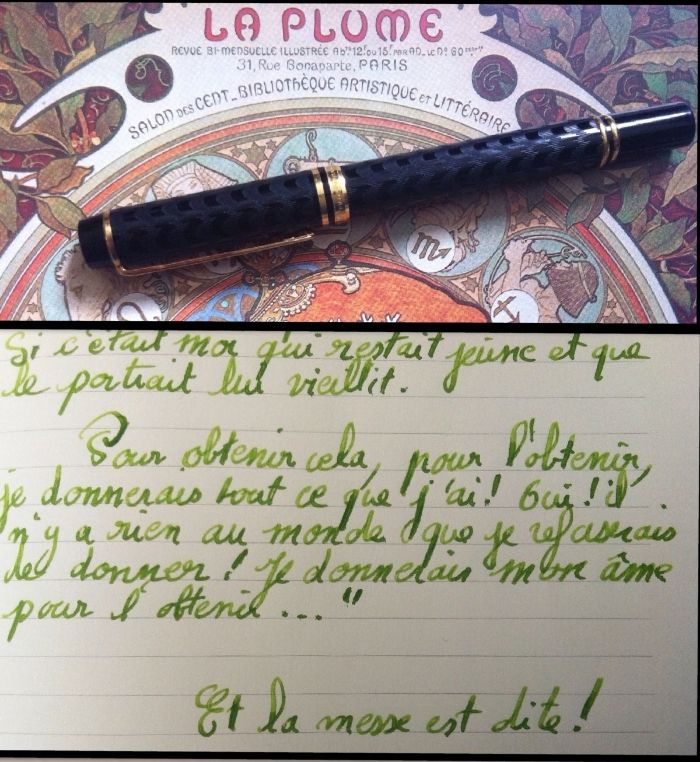 LA PLUME
REVUE BI-MENSUELLE ILLUSTRÉE
31, Rue Bonaparte, PARIS
SALON DES CENT_BIBLIOTHÈQUE ARTISTIQUE ET LITTÉRAIRE
Si c'était moi qui restait jeune et que
le portrait lui vieillit.
Pour obtenir cela, pour l'obtenir,
je donnerais tout ce que j'ai! Oui! il
n'y a rien au monde que je refuserais
de donner! Je donnerais mon âme
pour l'obtenir..."
Et la messe est dite!